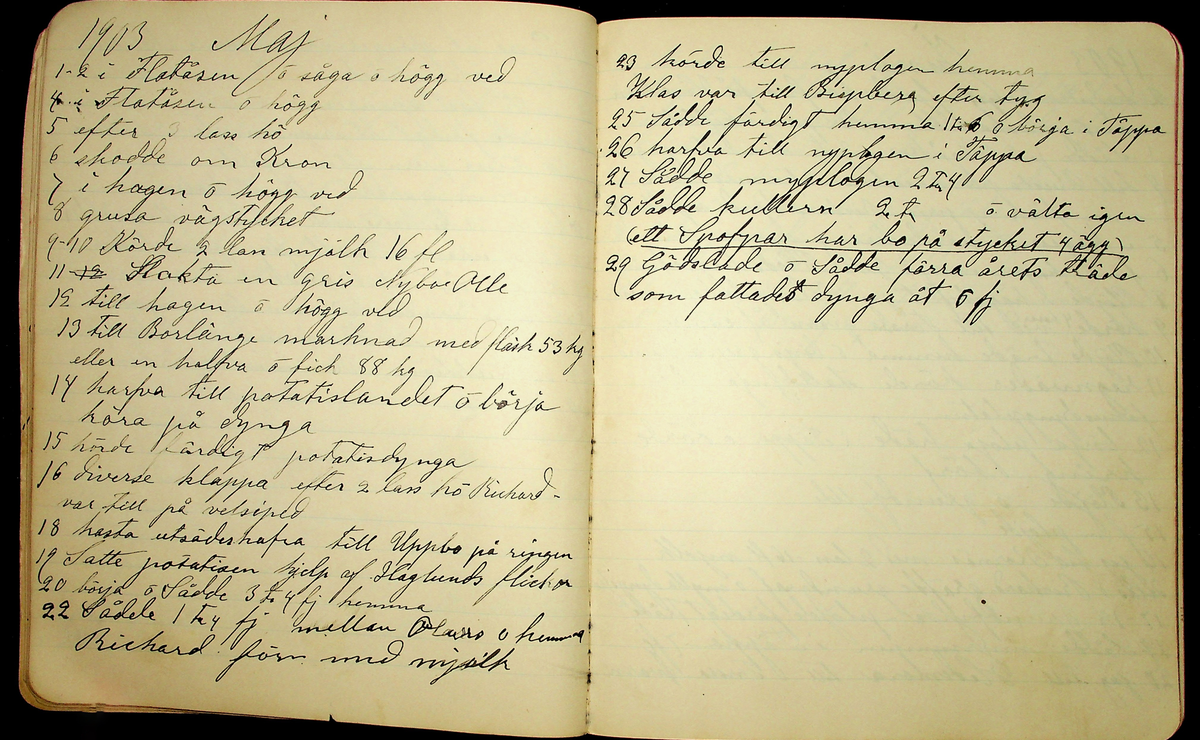 1903 Maj
1-2 i Flatåsen o såga o högg ved
4 i Flatåsen o högg
5 efter 3 lass hö
6 skodde om Kron
7 i hagen o högg ved
8 grusa vägstycket
9-10 Körde 2 lan mjölk 16 fl
11 12 Slakta en gris Nyboe Olle
12 till hagen o högg ved
13 till Borlänge marknad med fläsk 53 kg
eller en halfva o fick 88 kg
14 harfva till potatislandet o börja
köra på dynga
15 körde färdigt potatisdynga
16 diverse klappa efter 2 lass hö Richard
var till på velsiped
18 hasta utsädeshafra till Uppbo på ringen
19 Satte potatisen hjelp af Haglunds flickor
20 börja o Sådde 3 tr 4 fj hemma
22 Sådde 1 tr 4 fj mellan Olars o hemma
Richard förn med mjölk
23 körde till nyplogen hemma
Klas var till Bispberg efter tyg
25 Sådde färdigt hemma 1 tr 6 o börja i Täppa
26 harfva till nyplogen i Täppa
27 Sådde nyplogen 2 tr 4
28 Sådde kullern 2 tr o välta igen
(ett Spofpar har bo på stycket 4 ägg)
29 Gödslade o Sådde förra årets träde
som fattades dynga åt 5 fj